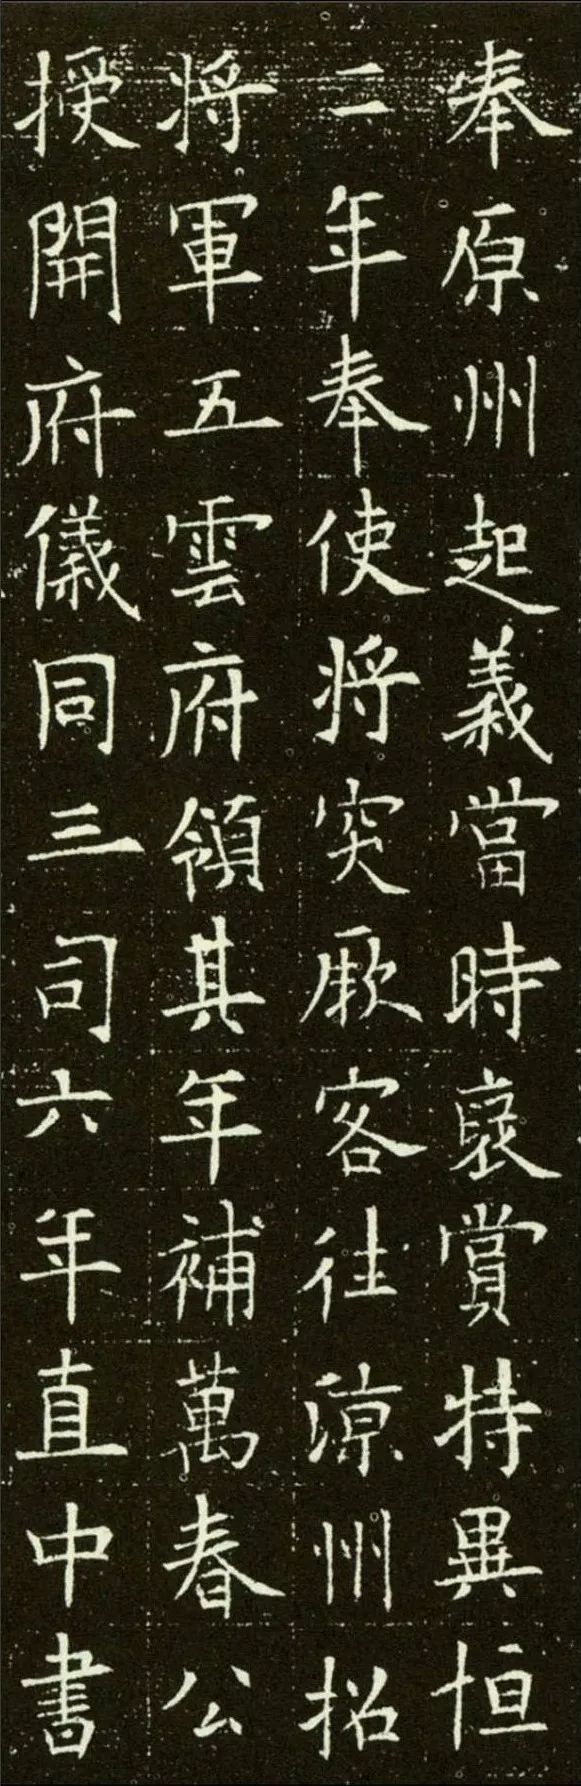 奉原州起義當時褒賞特異恒
二年奉使將突厥客往涼州招
将軍五雲府領其年補萬春公
授開府儀同三司六年直中書